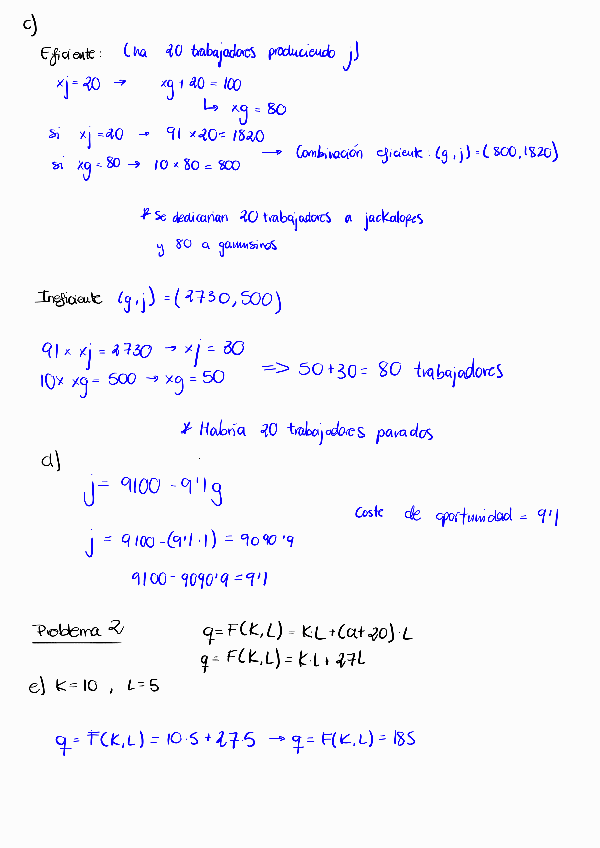 c)
Eficiente: (ha 20 trabajadores produciendo j)
xj = 20 → xg + 20 = 100
↳ xg = 80
si xj = 20 → 91 × 20 = 1820
si xg = 80 → 10 × 80 = 800 → Combinación eficiente. (g,j) = (800,1820)
* Se dedicarían 20 trabajadores a jackalopes
y 80 a gamusinos
Ineficiente (g,j) = (2730,500)
91 × xj = 2730 → xj = 30
10 × xg = 500 → xg = 50 => 50+30 = 80 trabajadores
* Habría 20 trabajadores parados
d)
j = 9100 - 9'1g
Coste de oportunidad = 9'1
j = 9100 - (9'1 · 1) = 9090'9
9100 - 9090'9 = 9'1
Problema 2 q = F(K,L) = K·L + (a+20)·L
q = F(K,L) = K·L + 27L
e) K=10 , L=5
q = F(K,L) = 10·5 + 27·5 → q = F(K,L) = 185